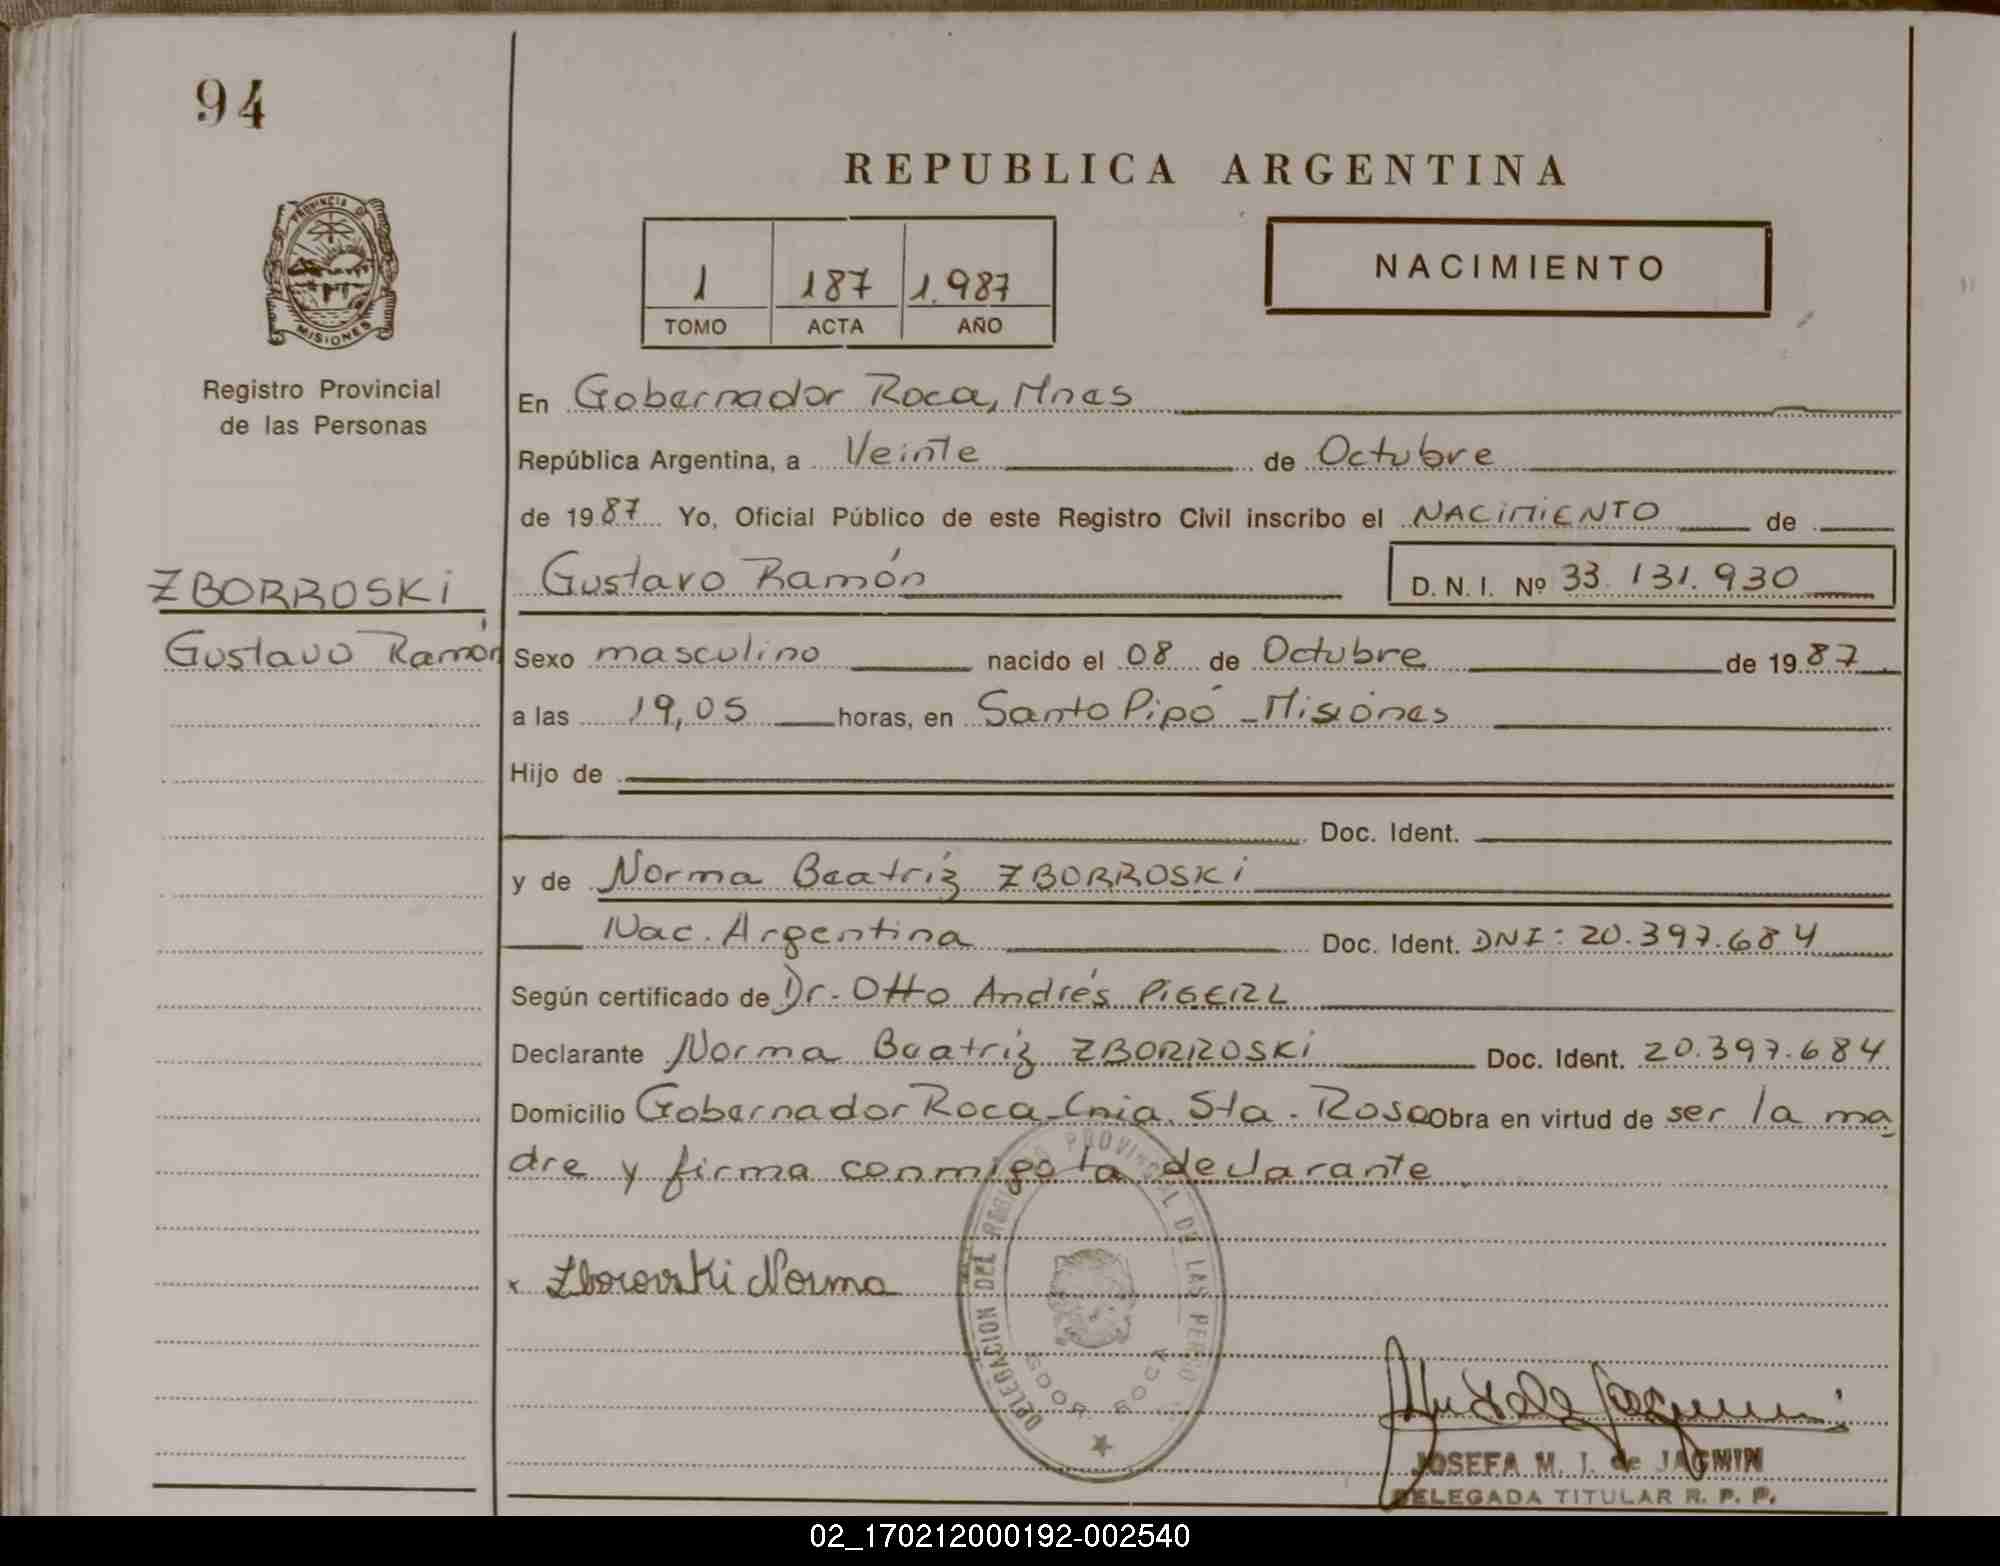 94
REPUBLICA ARGENTINA
PROVINCIA DE
MISIONES
1 187 1.987
TOMO ACTA AÑO
NACIMIENTO
Registro Provincial
de las Personas
En Gobernador Roca, Mnes
República Argentina, a Veinte de Octubre
de 1987 Yo, Oficial Público de este Registro Civil inscribo el NACIMIENTO de
ZBORROSKI
Gustavo Ramón D. N. I. Nº 33.131.930
Gustavo Ramón
Sexo masculino nacido el 08 de Octubre de 1987
a las 19,05 horas, en Santo Pipó - Misiones
Hijo de
Doc. Ident.
y de Norma Beatríz ZBORROSKI
Nac. Argentina Doc. Ident. DNI: 20.397.684
Según certificado de Dr. Otto Andrés
Declarante Norma Beatríz ZBORROSKI Doc. Ident. 20.397.684
Domicilio Gobernador Roca - Cnia. Sta. Rosa Obra en virtud de ser la ma
dre y firma conmigo la declarante
x Zborovski Norma
DELEGACION DEL REGISTRO PROVINCIAL DE LAS PERSO
JOSEFA M. I. de JAGMIN
DELEGADA TITULAR R. P. P.
02_170212000192-002540